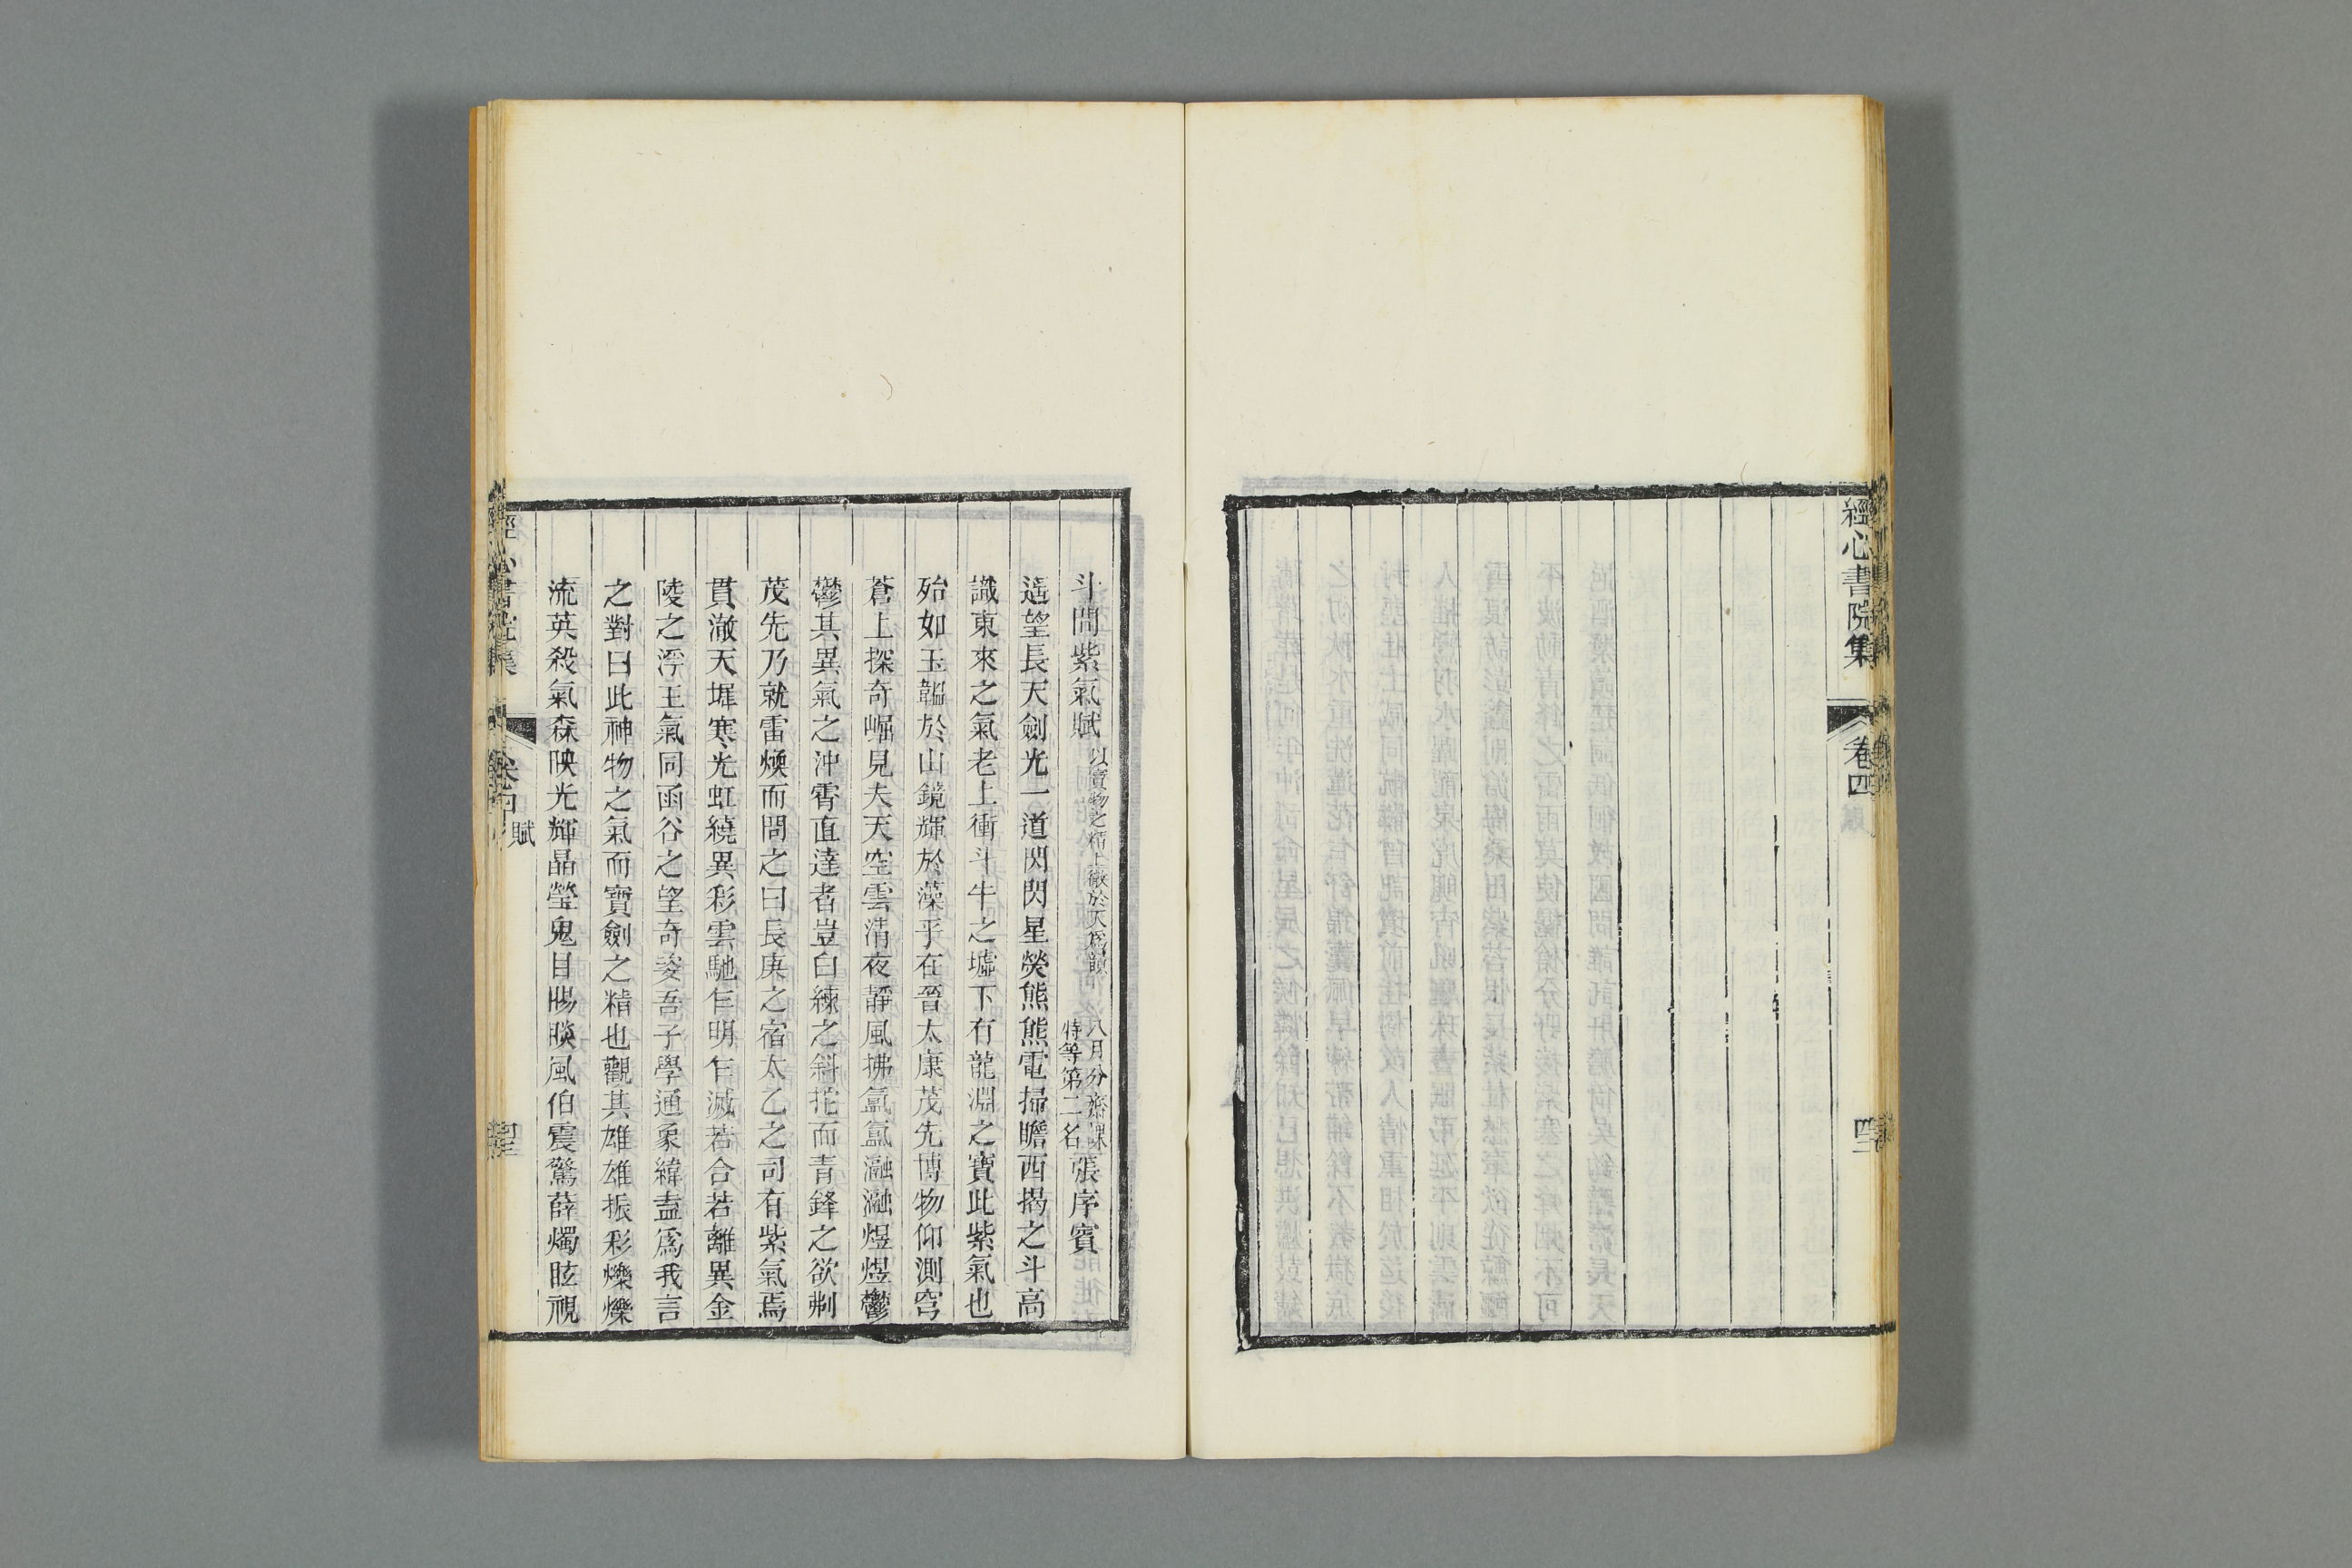 經心書院集
卷四
斗間紫氣賦 以寶物之精上徹於天爲韻 八月分齋課 特等第二名 張序賓
遥望長天劍光一道閃閃星熒熊熊電掃瞻西揭之斗高
識東來之氣老上衝斗牛之墟下有龍淵之寶此紫氣也
殆如玉韞於山鏡輝於藻乎在晉太康茂先博物仰測穹
蒼上探奇崛見夫天空雲清夜靜風拂氳氳瀜瀜煜煜鬱
鬱其異氣之沖霄直達者豈白練之斜拕而青鋒之欲刜
茂先乃就雷煥而問之曰長庚之宿太乙之司有紫氣焉
貫澈天墀寒光虹繞異彩雲馳乍明乍滅若合若離異金
陵之浮王氣同函谷之望奇姿吾子學通象緯盍爲我言
之對曰此神物之氣而寶劍之精也觀其雄雄振彩爍爍
流英殺氣森映光輝晶瑩鬼目暘睒風伯震驚薛燭眩視
經心書院集
卷四
賦